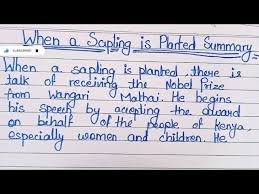 When a Sapling is Planted Summary
When a sapling is planted there is
talk of receiving the Nobel Prize
from Wangari Mathai. He begins
his speech by accepting the award
on behalf of the people of Kenya,
especially women and children. He